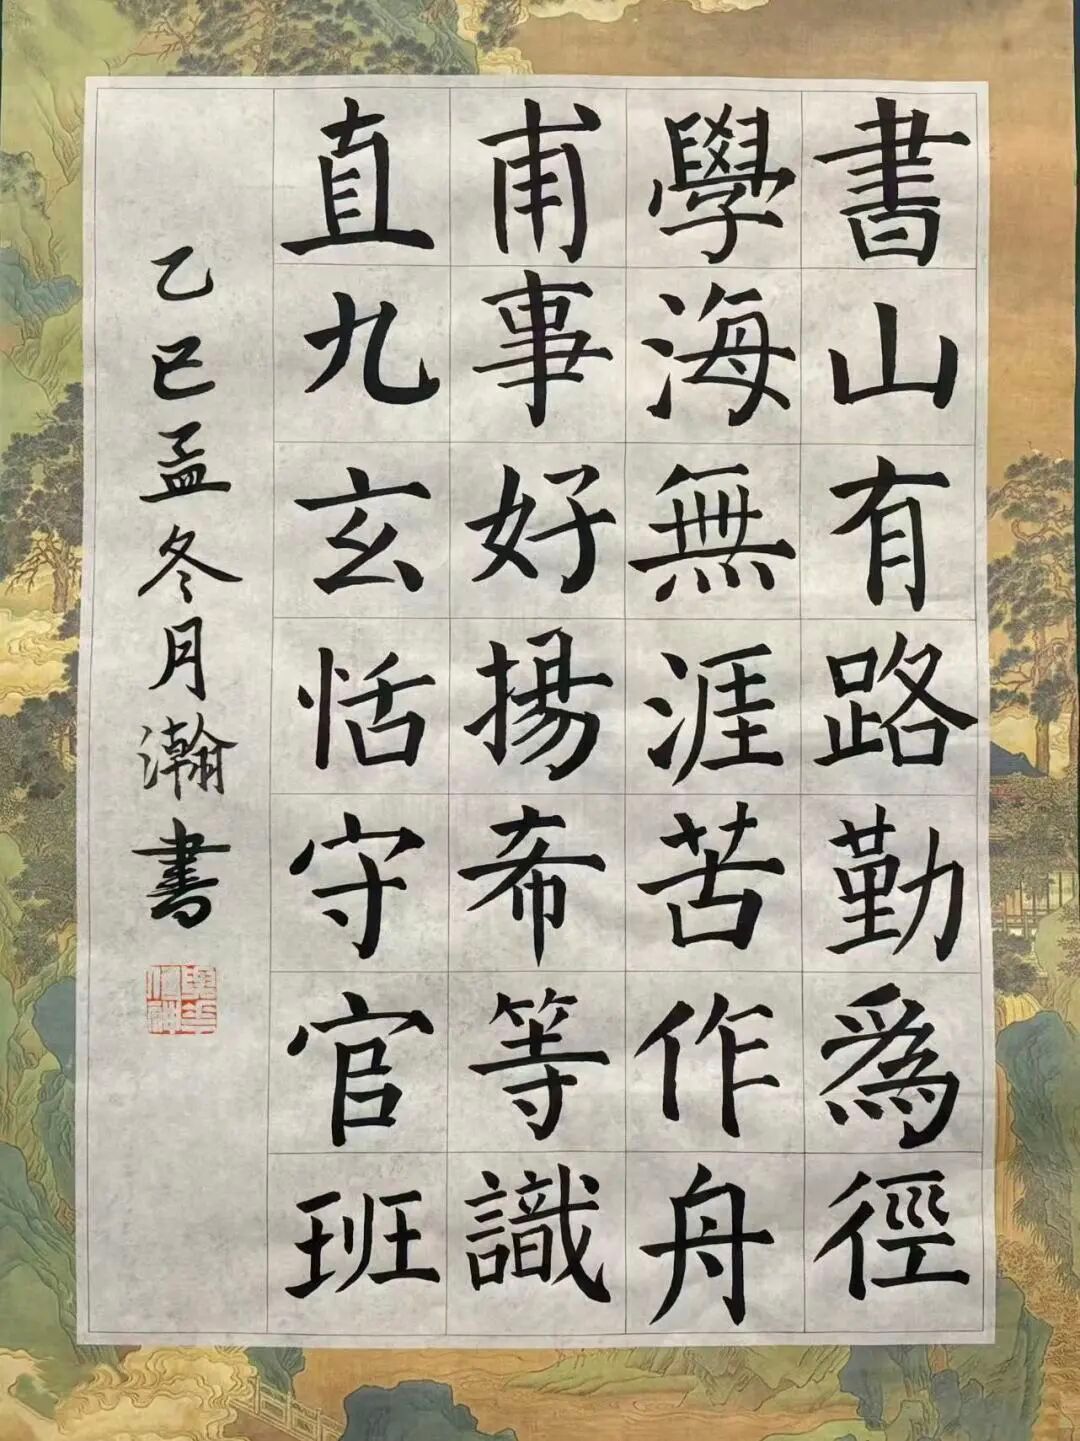 書山有路勤爲徑
學海無涯苦作舟
甫事好揚希等識
直九玄恬守官班
乙巳孟冬月瀚書